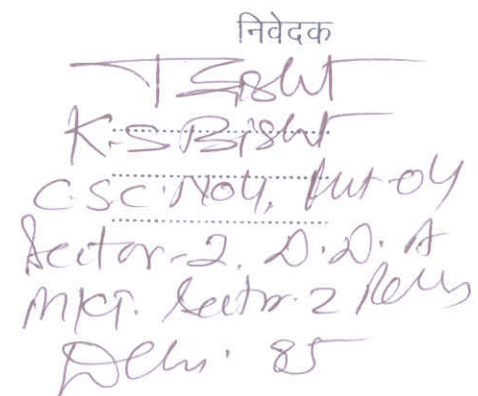 निवेदक
K.S Bisht
CSC No 4, Hut-04
Sector-2, D.D.A
Mkt. Sector-2
Delhi. 85